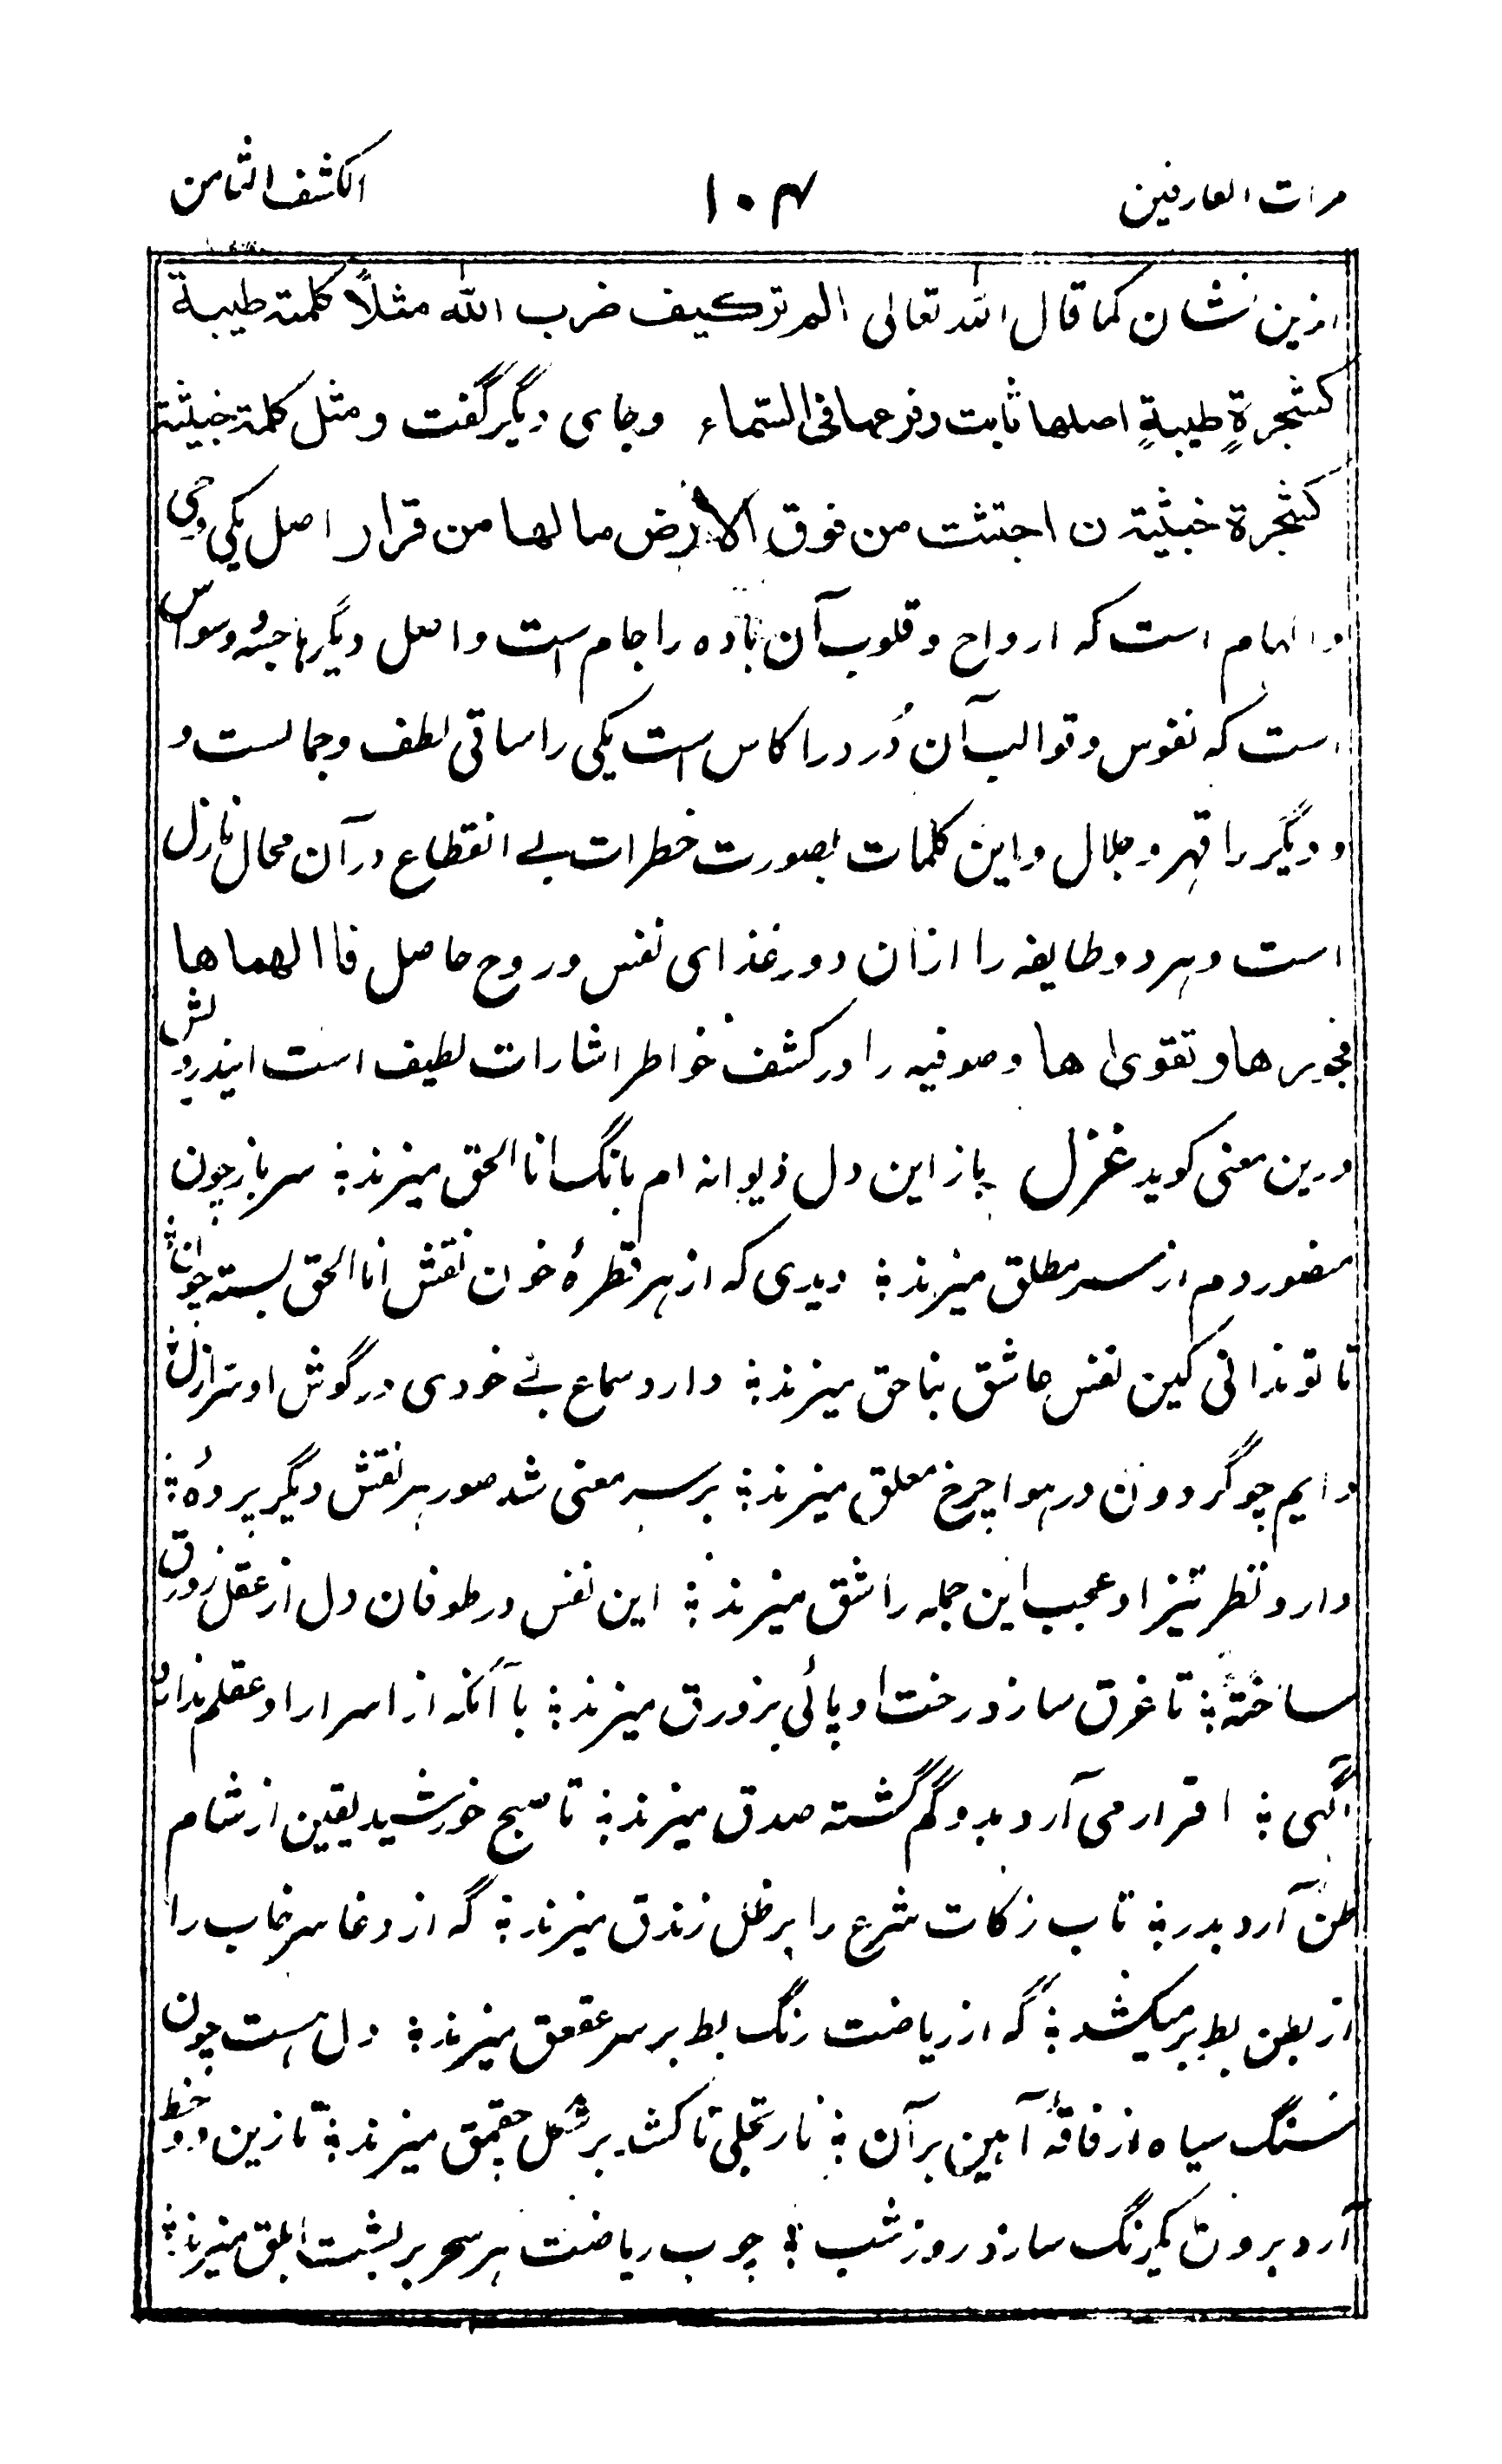 مرات العارفین ۱۰۴ الکشف الثامن
ازین نشان کما قال اللہ تعالی الم ترکیف ضرب اللہ مثلاً کلمة طیبة
کشجرةٍ طیبةٍ اصلها ثابت وفرعها فی السّماء وجای دیگر گفت ومثل کلمة خبیثة
کشجرة خبیثة ن اجتثت من فوق الارض ما لها من قرار اصل یکی وحی
والهام است که ارواح وقلوب آن باده را جام است واصل دیگر وسواس
است که نفوس وقوالب آن دُرد را کاس است یکی را ساقی لطف وجمالست و
و دیگر را قهر و جلال واین کلمات بصورت خطرات بے انقطاع در آن محال نازل
است وهر دو طایفه را ازان دور غذای نفس وروح حاصل فاالهماها
فجورها وتقوىٰها وصوفیه را در کشف خواطر اشارات لطیف است ایندرویش
درین معنی کوید غزل باز این دل دیوانه ام بانگ انا الحق میزند ؛ سر باز چون
منصور دم از سر مطلق میزند ؛ دیدی که از هر قطرهٔ خون نقش انا الحق بسته
تا تو ندانی کین نفس عاشق بناحق میزند ؛ دارد سماع بے خودی در گوش او
دایم چو گردون در هوا چرخ معلق میزند ؛ بر سر معنی شد صور هر نقش دیگر پردهٔ ؛
دارد نظر تیز او عجب این جمله را شق میزند ؛ این نفس در طوفان دل از عقل زورق
ساخته ؛ تا غرق سازد رخت او پائی بزورق میزند ؛ با آنکه از اسرار او عقلم ندارد
آگهی ؛ اقرار می آرد بدو گم گشته صدق میزند ؛ تا صبح خورشید یقین از شام
ظن آرد بدر ؛ تاب زکات شرع را بر ظل زندق میزند ؛ گه از دغا سرخاب را
از بطن بط بر میکشد ؛ گه از ریاضت رنگ بط بر سر عقعق میزند ؛ دل هست چون
سنگ سیاه از فاقهٔ آهین بر آن ؛ نار تجلی تا کشد بر شکل چقمق میزند ؛ تا زین دو خط
آرد برون یکرنگ سازد روز شب ؛ چوب ریاضت هر سحر بر پشت ابلق میزند ؛